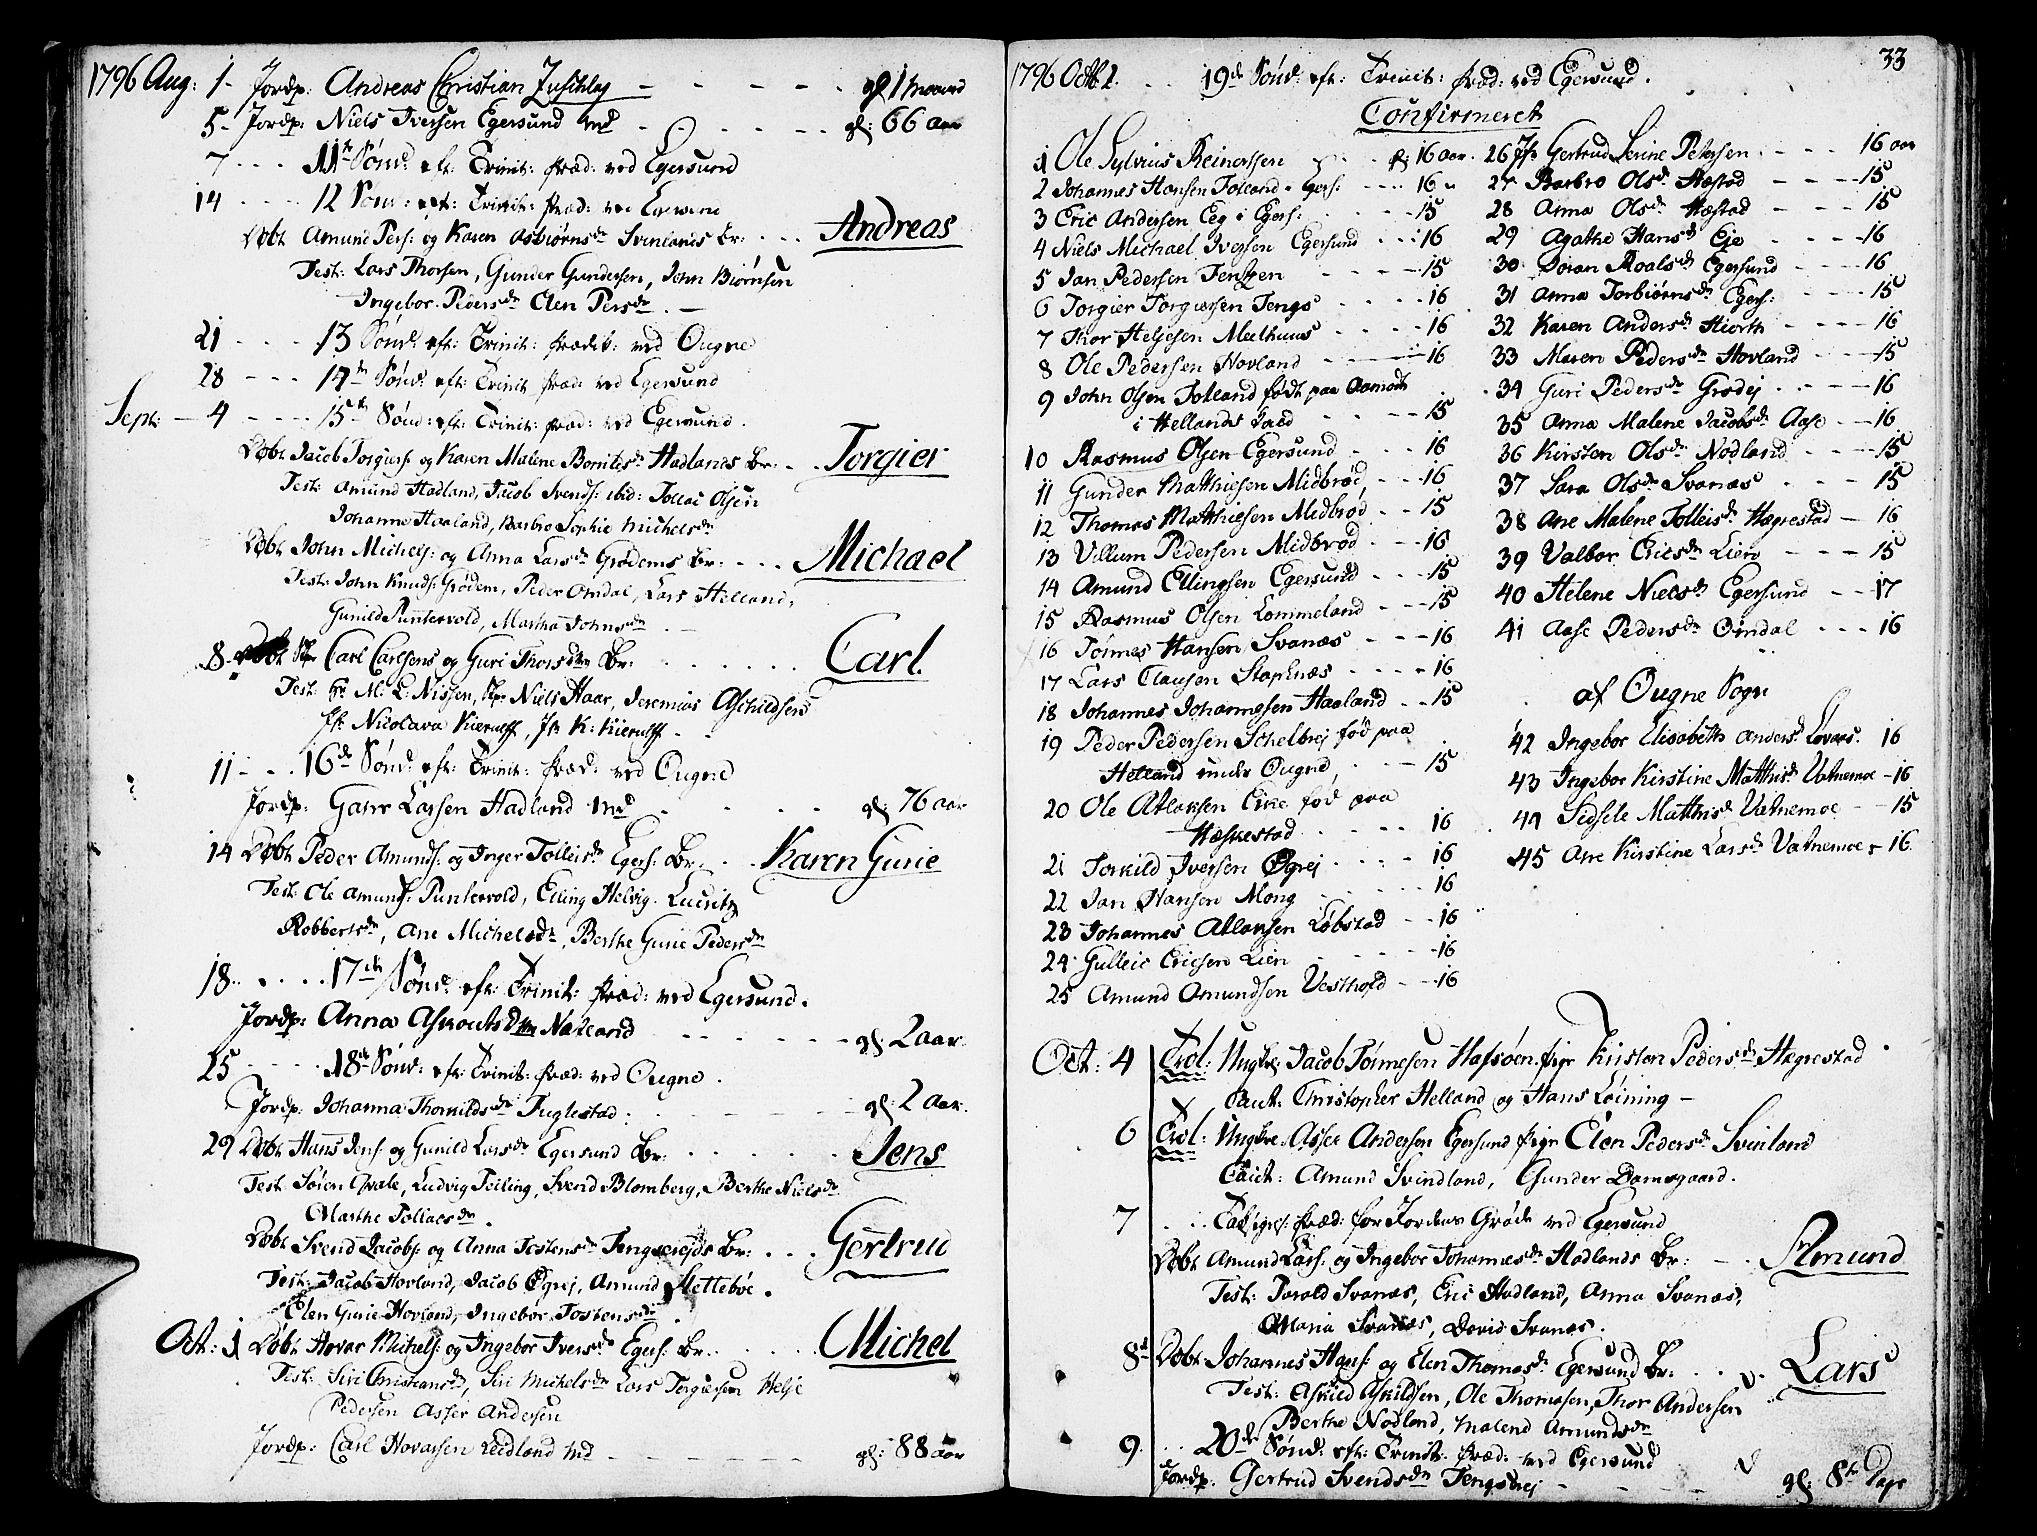 1796 Aug: 1 - Jordp: Andreas Christian Zuschlag - - - - - gl: 1 maaned
5 - Jordp: Niels Iversen Egersund md - - - - - gl: 66 aar
7 - - - 11te Sønd: eft: Trinit: præd: ved Egersund
14 - - - 12 Sønd: eft: Trinit: præd: ved Egersund
Døbt Amund Pers: og Karen Asbiørnsdr Svinlands Br: - - - Andreas
Test: Lars Thorsen, Gunder Gundersen, John Biørnsen
Ingebor Pedersdr Elen Persdr. -
21 - - - 13 Sønd: eft: Trinit: prædik: ved Ougne
28 - - - 14te Sønd: eft: Trinit præd: ved Egersund
Sept: - 4 - - - 15te Sønd: eft: Trinit: præd: ved Egersund.
Døbt Jacob Torgiers: og Karen Malene Bentsdr Hadlands Br: - - Torgier
Test: Amund Hadland, Jacob Svends: ibid: Tollac Olsen
Johanna Haaland, Barbro Sophie Michelsdr
Døbt John Michels: og Anna Larsdr Grødems Br: - - - Michael
Test: John Knuds: Grødem, Peder Omdal, Lars Helland,
Gunild Puntervold, Martha Johnsdr -
8 - Døbt Sr Carl Carlsens og Guri Thorsdtr Br: - - - Carl.
Test: Hr M: L: Nissen, Sr Niels Haar, Jeremias Aschildsen
Jfr Nicolava Kierulff, Jfr K: Kierulff -
11 - - - 16de Sønd: eft: Trinit: præd: ved Ougne
Jordp: Garr Larsen Hadland md - - - gl: 76 aar
14 Døbt Peder Amunds: og Inger Tolleisdr Egers: Br: - - Karen Gurie
Test: Ole Amunds: Puntervold, Elling Helvig. Lucritz
Robbertsdr, Ane Michelsdr, Berthe Gurie Pedersdr
18 - - - 17de Sønd: eft: Trinit: præd: ved Egersund.
Jordp: Anna Askoutsdtr Nadland - - - gl: 2 aar.
25 - - - 18de Sønd: eft: Trinit: præd: ved Ougne.
Jordp: Johanna Thorkildsdr Fuglestad: - - - gl: 2 aar.
29 Døbt Hans Jens: og Gunild Larsdr Egersund Br: - - - Jens
Test: Søren Qvale, Ludvig Feiling, Svend Blomberg, Berthe Nielsdr
Marthe Tollacsdr.
Døbt Svend Jacobs: og Anna Tostensdr Tengsarejds Br: - - - Gertrud
Test: Jacob Hovland, Jacob Øgrej, Amund Slettebøe.
Elen Gurie Hovland, Ingebor Tostensdr
Oct: 1 Døbt Hovar Michels: og Ingebor Iversdr Egers: Br: - - - Michel
Test: Siri Christiansdr, Siri Michelsdr Lars Torgiersen Helje
Pedersen Asser Andersen
Jordp: Carl Hovarsen Leidland md - - - gl: 88 aar
33
1796 Octb: 2. - - 19de Sønd: eft: Trinit: præd: ved Egersund.
Confirmeret
1 Ole Sylvius Reinertsen - - - gl: 16 aar.
2 Johannes Hansen Tolland - Egers: - - - 16
3 Eric Andersen Eeg i Egers: - - - 15
4 Niels Michael Iversen Egersund - - - 16
5 Jan Pedersen Tengsen - - - 15
6 Torgier Torgiersen Tengs - - - 16
7 Thor Heljesen Meelhuus - - - 16
8 Ole Pedersen Hovland - - - 16
9 John Olsen Tolland født paa Aamodt
i Hellands Sogn - - - 15
10 Rasmus Olsen Egersund - - - 16
11 Gunder Matthiesen Midbrød, - - - 16
12 Thomas Matthiesen Midbrød - - 15
13 Villum Pedersen Midbrød - - - 16
14 Amund Ellingsen Egersund - - - 15
15 Rasmus Olsen Lommeland - - - 15
16 Tønnes Hansen Svanæs - - - 16
17 Lars Clausen Stapnæs - - - 16
18 Johannes Johannesen Haaland - - 15
19 Peder Pedersen Schelbrej fød paa
Helland under Ougne, - - - 15
20 Ole Atlaksen Eike fød paa
Hæskestad - - - 16
21 Torkild Iversen Øgrej - - - 16
22 Jan Hansen Mong - - - 16
23 Johannes Atlaksen Løbstad - - 16
24 Gulleic Ericsen Lien - - - 16
25 Amund Amundsen Vesthofd - - 16
26 Jfr Gertrud Serine Petersen - - - 16 aar
27 Barbro Olsdr Hæstad - - - 15
28 Anna Olsdr Hæstad - - - 15
29 Agathe Hansdr Eje - - - 16
30 Soran Roalsdr Egersund - - - 16
31 Anna Torbiørnsdr Egers: - - - 15
32 Karen Andersdr Hiorth - - - 16
33 Maren Pedersdr Hovland - - - 15
34 Guri Pedersdr Grødej - - - 16
35 Anna Malene Jacobsdr Aase - - 16
36 Kirsten Olsdr Nodland - - - 15
37 Sara Olsdr Svanæs - - - 15
38 Ane Malene Tolleisdr Hægrestad - 16
39 Valbor Ericsdr Liero - - - 15
40 Helene Nielsdr Egersund - - 17
41 Aase Pedersdr Omdal - - - 16
af Ougne Sogn
42 Ingebor Elisabeth Andersdr Lovaas. 16
43 Ingebor Kirstine Matthisdr Vatnemoe - 16
44 Sidsele Matthisdr Vatnemoe - - 15
45 Ane Kirstine Larsdr Vatnemoe - 16
Oct: 4 Trol: Ungkrl: Jacob Tønnesen Hafsøen. pige Kirsten Pedersdr Hægrestad
Caut: Christopher Helland og Hans Leining -
6 Trol: Ungkrl. Asser Andersen Egersund pige Elen Pedersdr Svinland
Caut: Amund Svindland, Gunder Damsgaard.
7 - - Taksigels: præd: for Jordens Grøde ved Egersund
Døbt Amund Lars: og Ingebor Johannesdr Hadlands Br: - - Amund
Test: Tarald Svanæs, Eric Hadland, Anna Svanæs,
Maria Svanæs, David Svanæs.
8de Døbt Johannes Hans: og Elen Thomasdr Egersund Br: - - - Lars
Test: Askild Askildsen, Ole Thomasen, Thor Andersen
Berthe Nodland, Malene Amundsdr
9 - - 20de Sønd: eft: Trinit: præd: ved Egersund
Jordp: Gertrud Svendsdr Tengsarej - - - gl: 8te Dage